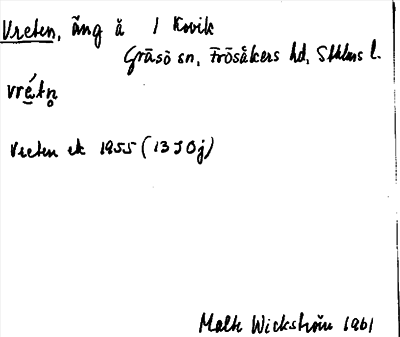 Vreten, äng å 1 Kovik
Gräsö sn, Frösåkers hd, Sthlms l.
vré̬tn̥
Vreten ek 1955 (13 I 0j)
Malte Wickström 1961